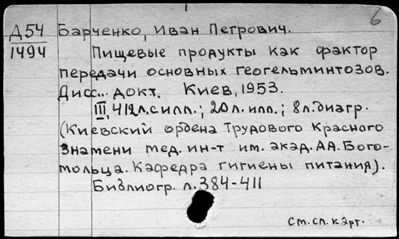 6
Д54 Барченко, Иван Петрович.
1494 Пищевые продукты как фактор
передачи основных геогельминтозов.
Дисс... докт. Киев, 1953.
III, 412л.с илл.; 20л. илл.; 8л.диагр.
(Киевский ордена Трудового Красного
Знамени мед. ин-т им. акад. А.А. Бого-
мольца. Кафедра гигиены питания).
Библиогр. л. 384-411
См. сл. карт.